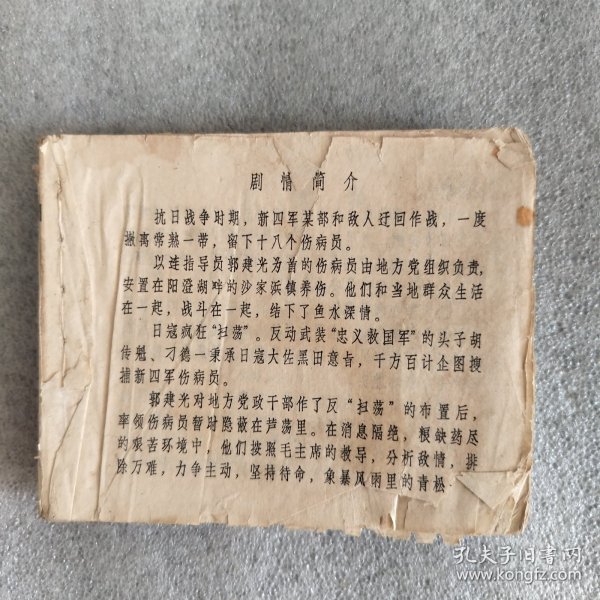 剧情简介
抗日战争时期，新四军某部和敌人迂回作战，一度
撤离常熟一带，留下十八个伤病员。
以连指导员郭建光为首的伤病员由地方党组织负责，
安置在阳澄湖畔的沙家浜镇养伤。他们和当地群众生活
在一起，战斗在一起，结下了鱼水深情。
日寇疯狂“扫荡”。反动武装“忠义救国军”的头子胡
传魁、刁德一秉承日寇大佐黑田意旨，千方百计企图搜
捕新四军伤病员。
郭建光对地方党政干部作了反“扫荡”的布置后，
率领伤病员暂时隐蔽在芦荡里。在消息隔绝，粮缺药尽
的艰苦环境中，他们按照毛主席的教导，分析敌情，排
除万难，力争主动，坚持待命，象暴风雨里的青松
孔夫子旧书网
www.kongfz.com